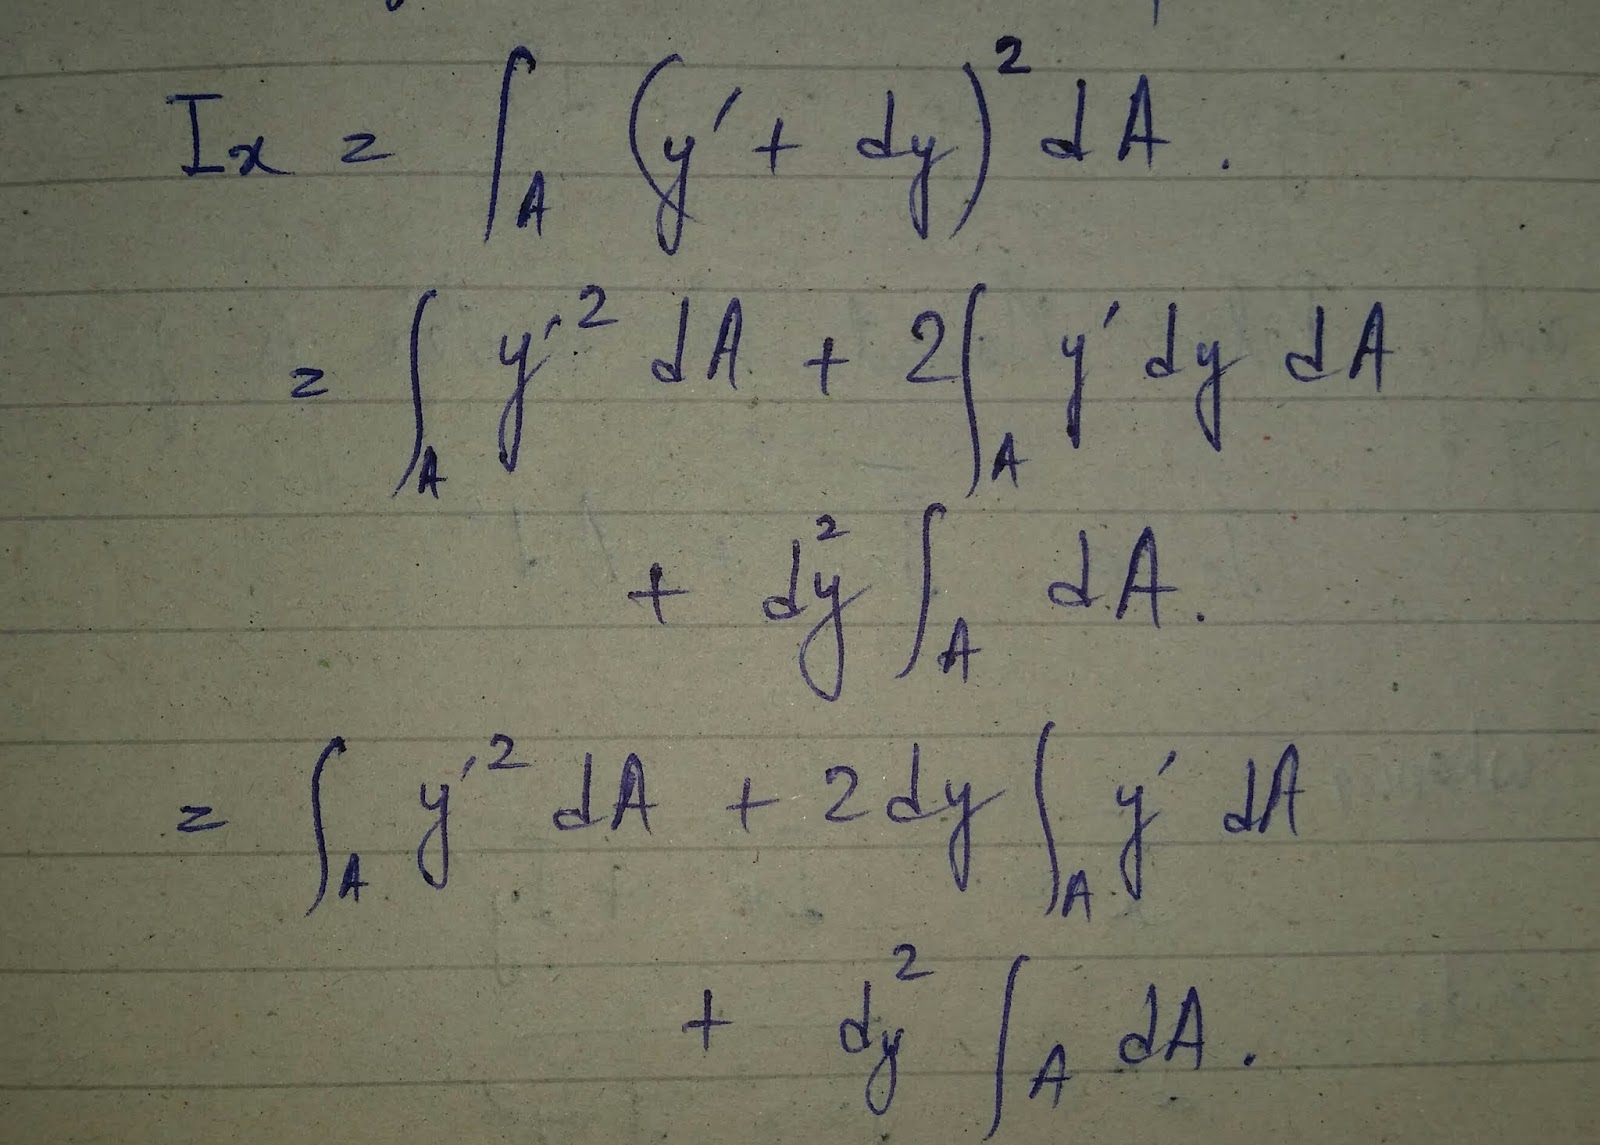 Ix = ∫_A (y' + dy)² dA.
= ∫_A y'² dA + 2∫_A y' dy dA
+ dy² ∫_A dA.
= ∫_A y'² dA + 2 dy ∫_A y' dA
+ dy² ∫_A dA.